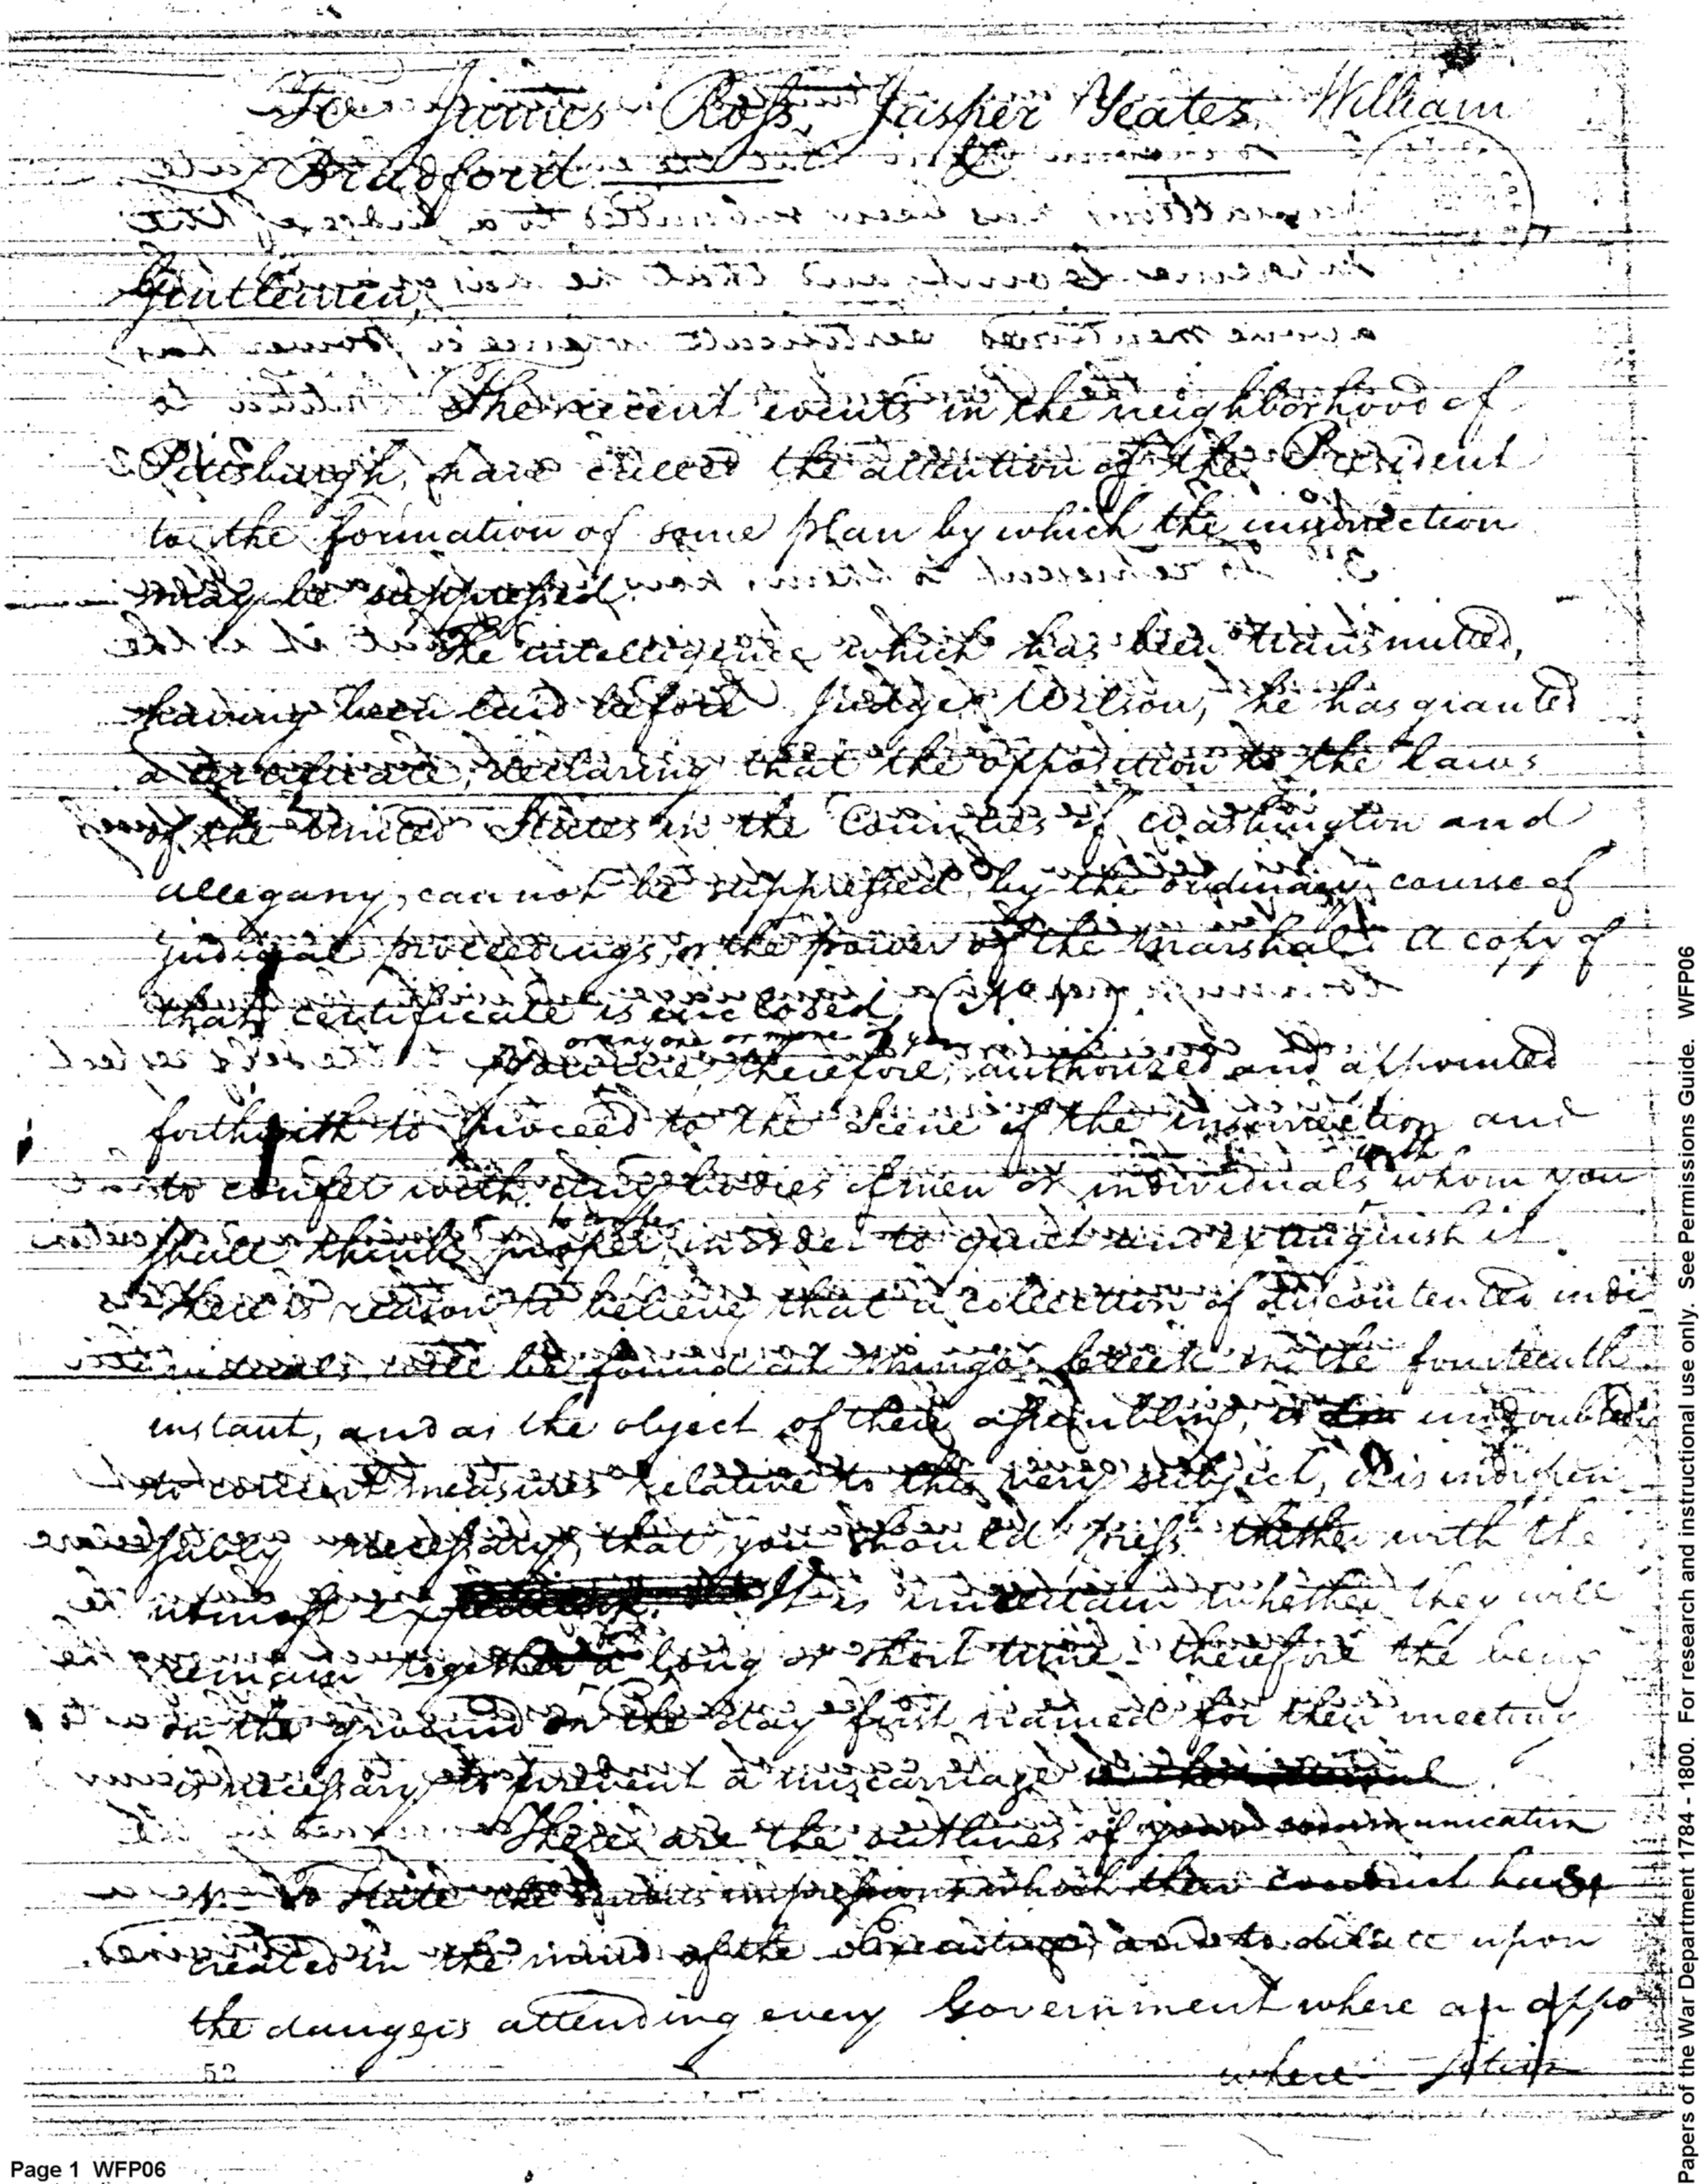 To James Ross, Jasper Yeates, William
Bradford
Gentlemen,
The recent events in the neighborhood of
Pittsburgh, have called the attention of the President
to the formation of some plan by which the insurrection
may be suppressed.
The intelligence which has been transmitted,
having been laid before Judge Wilson, he has granted
a certificate, declaring that the opposition to the laws
of the United States in the Counties of Washington and
allegany, cannot be suppressed by the ordinary course of
judicial proceedings, or the power of the Marshal. A copy of
that certificate is enclosed,
or any one or more of you
therefore, authorized and appointed
forthwith to proceed to the Scene of the insurrection and
to confer with any bodies of men or individuals with whom you
shall think proper to confer in order to quiet and extinguish it.
There is reason to believe that a collection of discontented indi
viduals will be found at Mingo Creek on the fourteenth
instant, and as the object of their assembling, is undoubtedly
to concert measures relative to this very subject, it is indispen
sably necessary, that you should press thither with the
utmost It is uncertain whether they will
remain together a long or short time. therefore the being
on the ground on the day first named for their meeting
is necessary to prevent a miscarriage
These are the outlines of your communication
1st To State the serious impressions which their conduct has
created in the mind of the Executive, and to dilate upon
the dangers attending every Government where an oppo
where sition
52
Page 1 WFP06
Papers of the War Department 1784 - 1800. For research and instructional use only. See Permissions Guide. WFP06